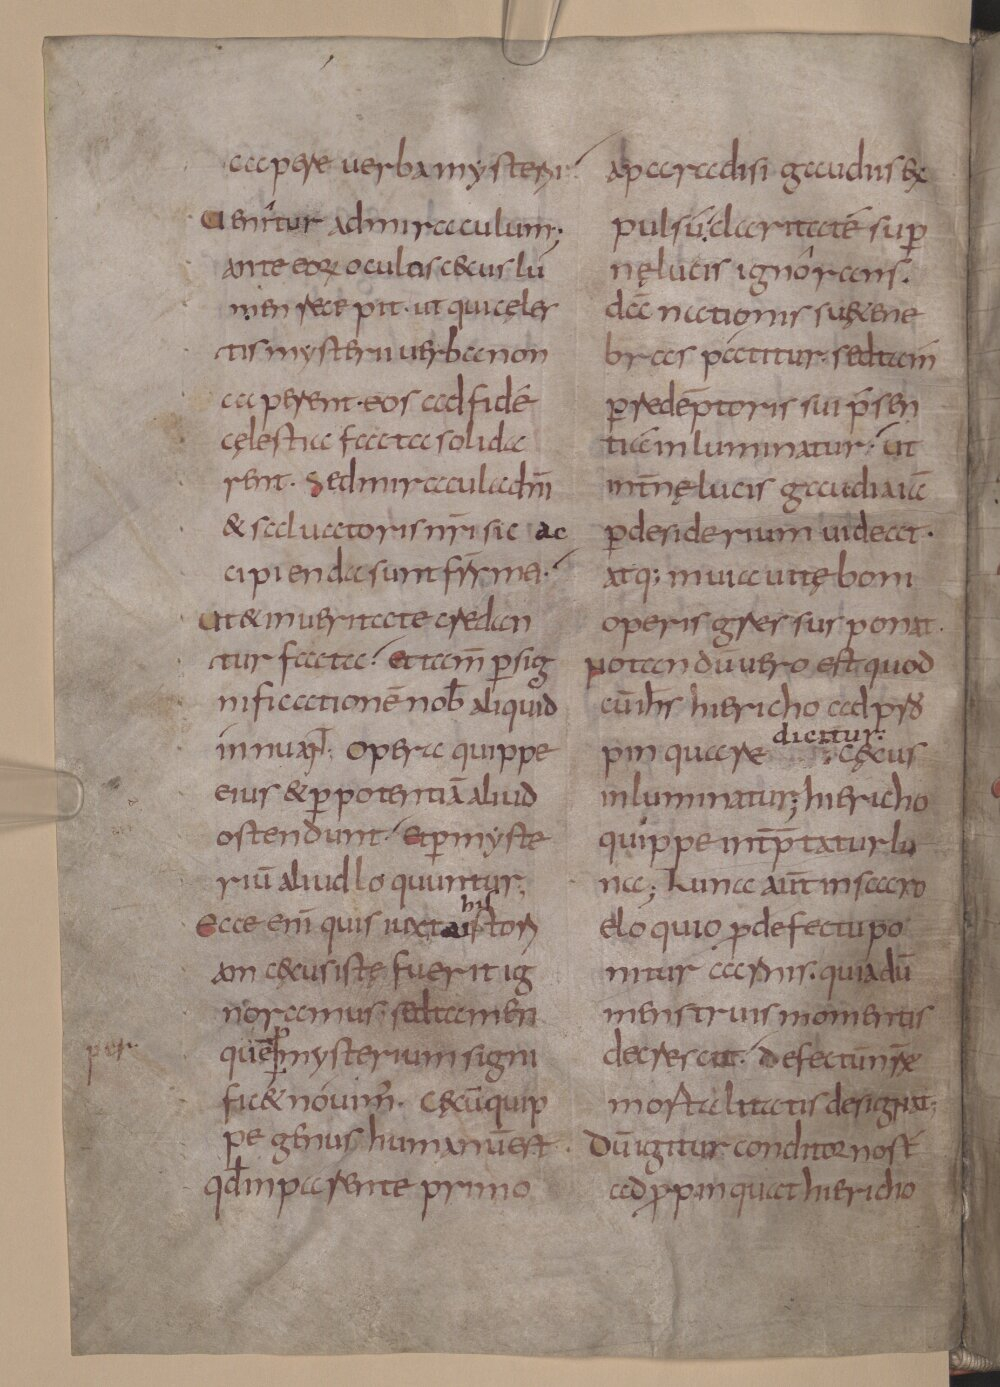 capere uerba mysterii.
Uenitur ad miraculum;
ante eoꝝ oculos cęcus lu
men recepit. ut qui cęles
tis mysterii uerba non
caperent. eos ad fidē
cęlestia facta solida
rent. Sed miracula dn̄i
& saluatoris nr̄i sic ac
cipienda sunt fr̄s mei.
Ut & in ueritate credan
tur facta. et tam̄ ꝑ sig
nificationē nob̄ aliquid
innuant. Opera quippe
eius & ꝑ potentiā aliud
ostendunt. et ꝑ myste
riū aliud loquuntur;
Ecce enī quis iuxta histor
iam cęcus iste fuerit ig
noramus. sed tamen
quē ꝑ mysterium signi
fic& nouim̄. Cęcū quip
pe genus humanū est
per
qđ in parente primo
a paradisi gaudiis ex
pulsū. claritatē suꝑ
nę lucis ignorans.
dānationis suę tene
bras patitur. sed tam̄
ꝑ redēptoris sui p̄sen
tiā inluminatur. ut
int̄nę lucis gaudia iā
ꝑ desiderium uideat.
atq; in uia uitę boni
operis gressus ponat.
Notandū uero est quod
cū ih̄s hiericho ad p̄ro
pinquare dicitur. cęcus
inluminatur; hiericho
quippe int̄p̄tatur lu
na; Luna aut̄ in sacro
eloquio ꝓ defectu po
nitur carnis. quia dū
menstruis momentis
decrescit. defectū nr̄e
mortalitatis designat;
Dū igitur conditor nost̄
ad ꝓpinquat hiericho